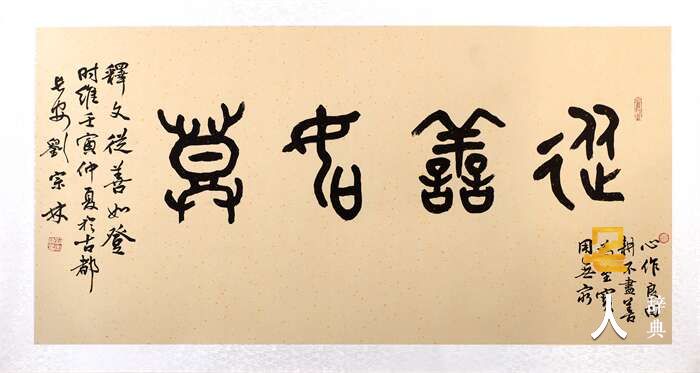 從善如登
心作良田
耕不盡善
為至寶
用無窮
釋文從善如登
时維壬寅仲夏於古都
长安劉宗林
人
辞典